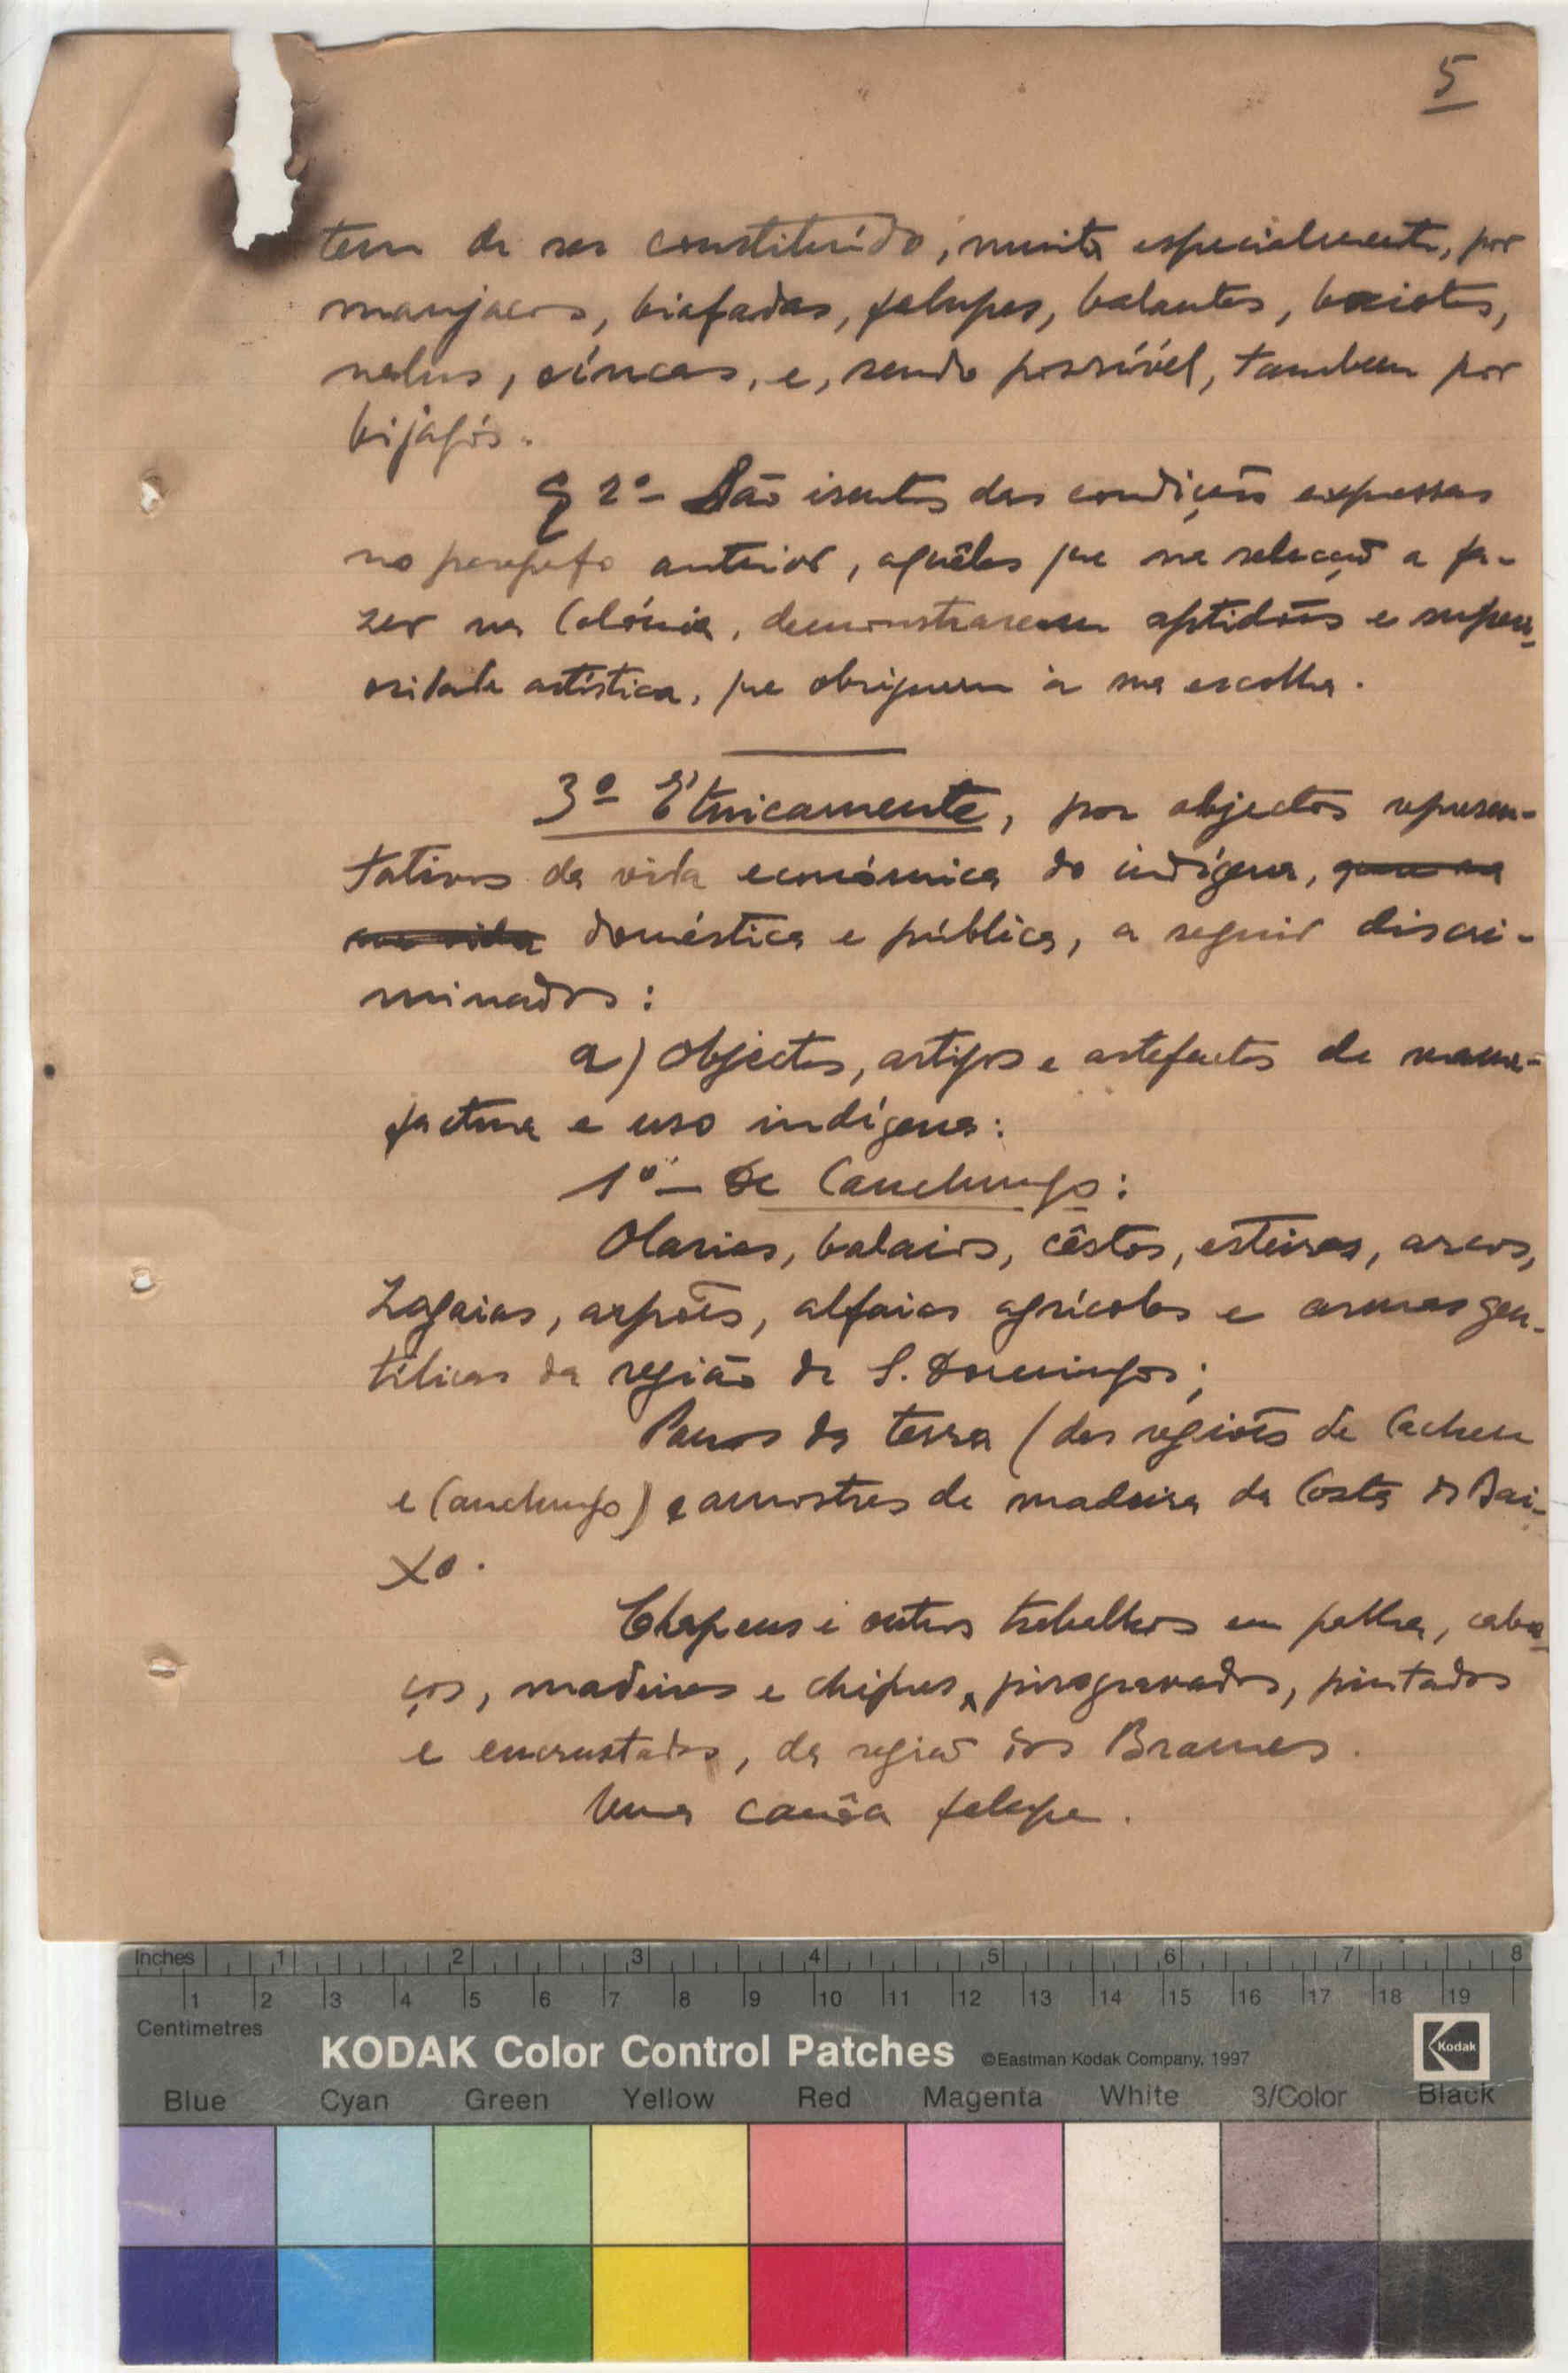 5
tem de ser constituído, muito especialmente, por
manjacos, biafadas, felupes, balantas, baiotes,
nalus, e, sendo possível, tambem por
bijagós.
§ 2º - São isentos das condições expressas
no paragrafo anterior, aquêles que na selecção a fa-
zer na Colónia, demonstrarem aptidões e superi-
oridade artística, que obriguem à sua escolha.
3º Etnicamente, por objectos represen-
tativos da vida económica do indígena,
doméstica e pública, a seguir discri-
minados:
a) Objectos, artigos e artefactos de manu-
factura e uso indígena:
1º - De Canchungo:
Olarias, balaios, cêstos, esteiras, arcos,
zagaias, arpões, alfaias agrícolas e armas gen-
tílicas da região de S. Domingos;
Panos da terra (das regiões de Cacheu
e Canchungo) e amostras de madeira da Costa de Bai-
xo.
Chapeus e outros trabalhos em palha, caba-
ços, madeiras e chifres, pirogravados, pintados
e encrustados, da região dos Brames.
Uma canôa felupe.
Inches 1 2 3 4 5 6 7 8
1 2 3 4 5 6 7 8 9 10 11 12 13 14 15 16 17 18 19
Centimetres
KODAK Color Control Patches ©Eastman Kodak Company, 1997 Kodak
Blue Cyan Green Yellow Red Magenta White 3/Color Black